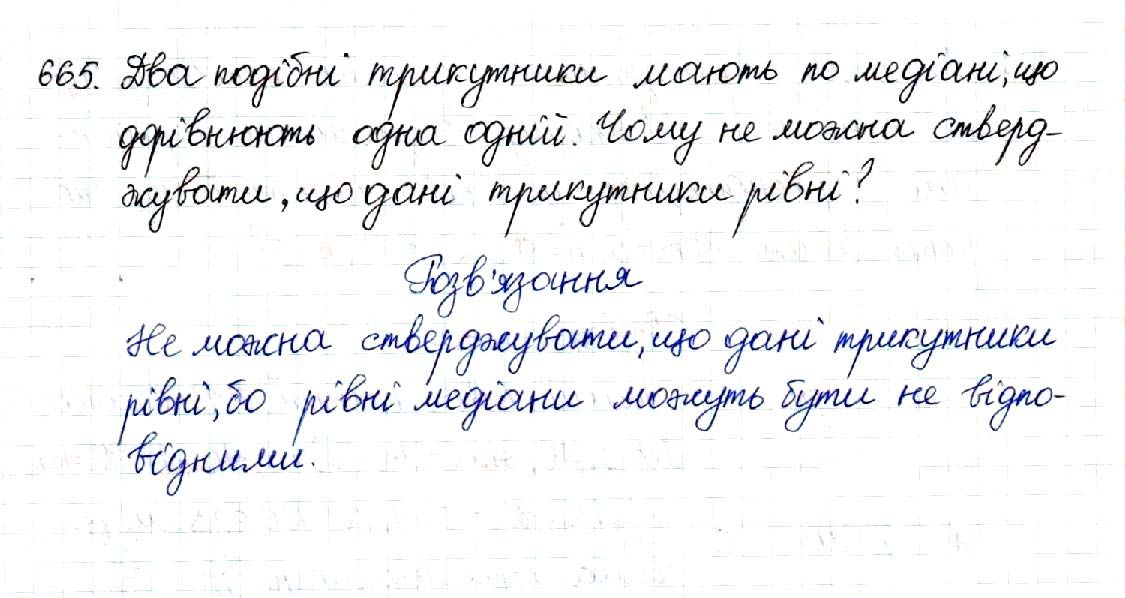 665. Два подібні трикутники мають по медіані, що
дорівнюють одна одній. Чому не можна стверд-
жувати, що дані трикутники рівні?
Розв'язання
Не можна стверджувати, що дані трикутники
рівні, бо рівні медіани можуть бути не відпо-
відними.